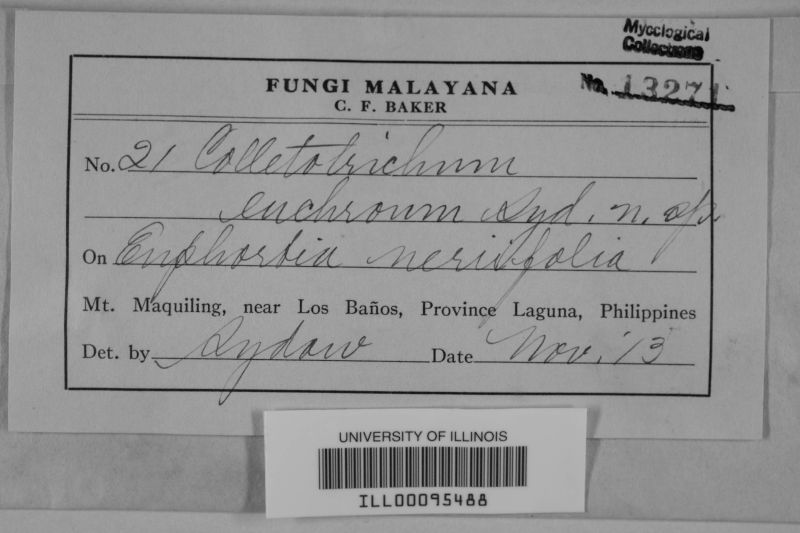 Mycological
Collections
No. 13271
FUNGI MALAYANA
C. F. BAKER
No. 21 Colletotrichum
euchroum Syd. n. sp.
On Euphorbia neriifolia
Mt. Maquiling, near Los Baños, Province Laguna, Philippines
Det. by Sydow Date Nov. '13
UNIVERSITY OF ILLINOIS
ILL00095488